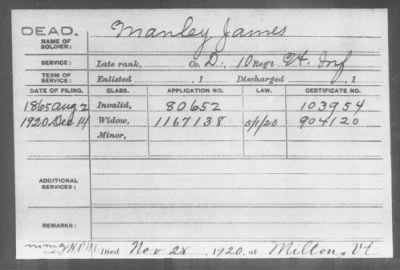 DEAD.
NAME OF SOLDIER: Manley James
SERVICE: Late rank, Co. D. 10 Regt Vt. Inf
TERM OF SERVICE: Enlisted , 1 Discharged , 1
DATE OF FILING. CLASS. APPLICATION NO. LAW. CERTIFICATE NO.
1865 Aug 2 Invalid, 80652 103954
1920. Dec 14 Widow, 1167138 5/1/20 904120
Minor,
ADDITIONAL SERVICES:
REMARKS:
Died Nov 28 1920, at Milton, Vt